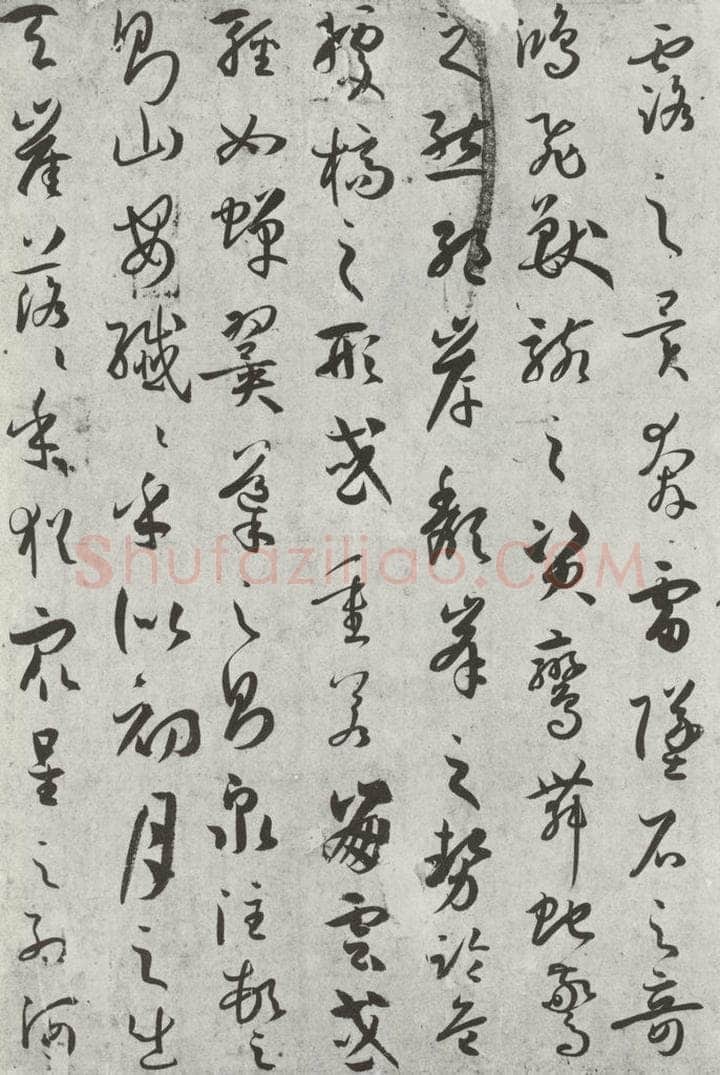 露之異奔雷墜石之奇
鴻飛獸駭之資鸞舞蛇驚
之態絕岸頹峯之勢臨危
據槁之形或重若崩雲或
輕如蟬翼導之則泉注頓之
則山安纖〻乎似初月之出
天崖落〻乎猶衆星之列河
Shufaziliao.COM